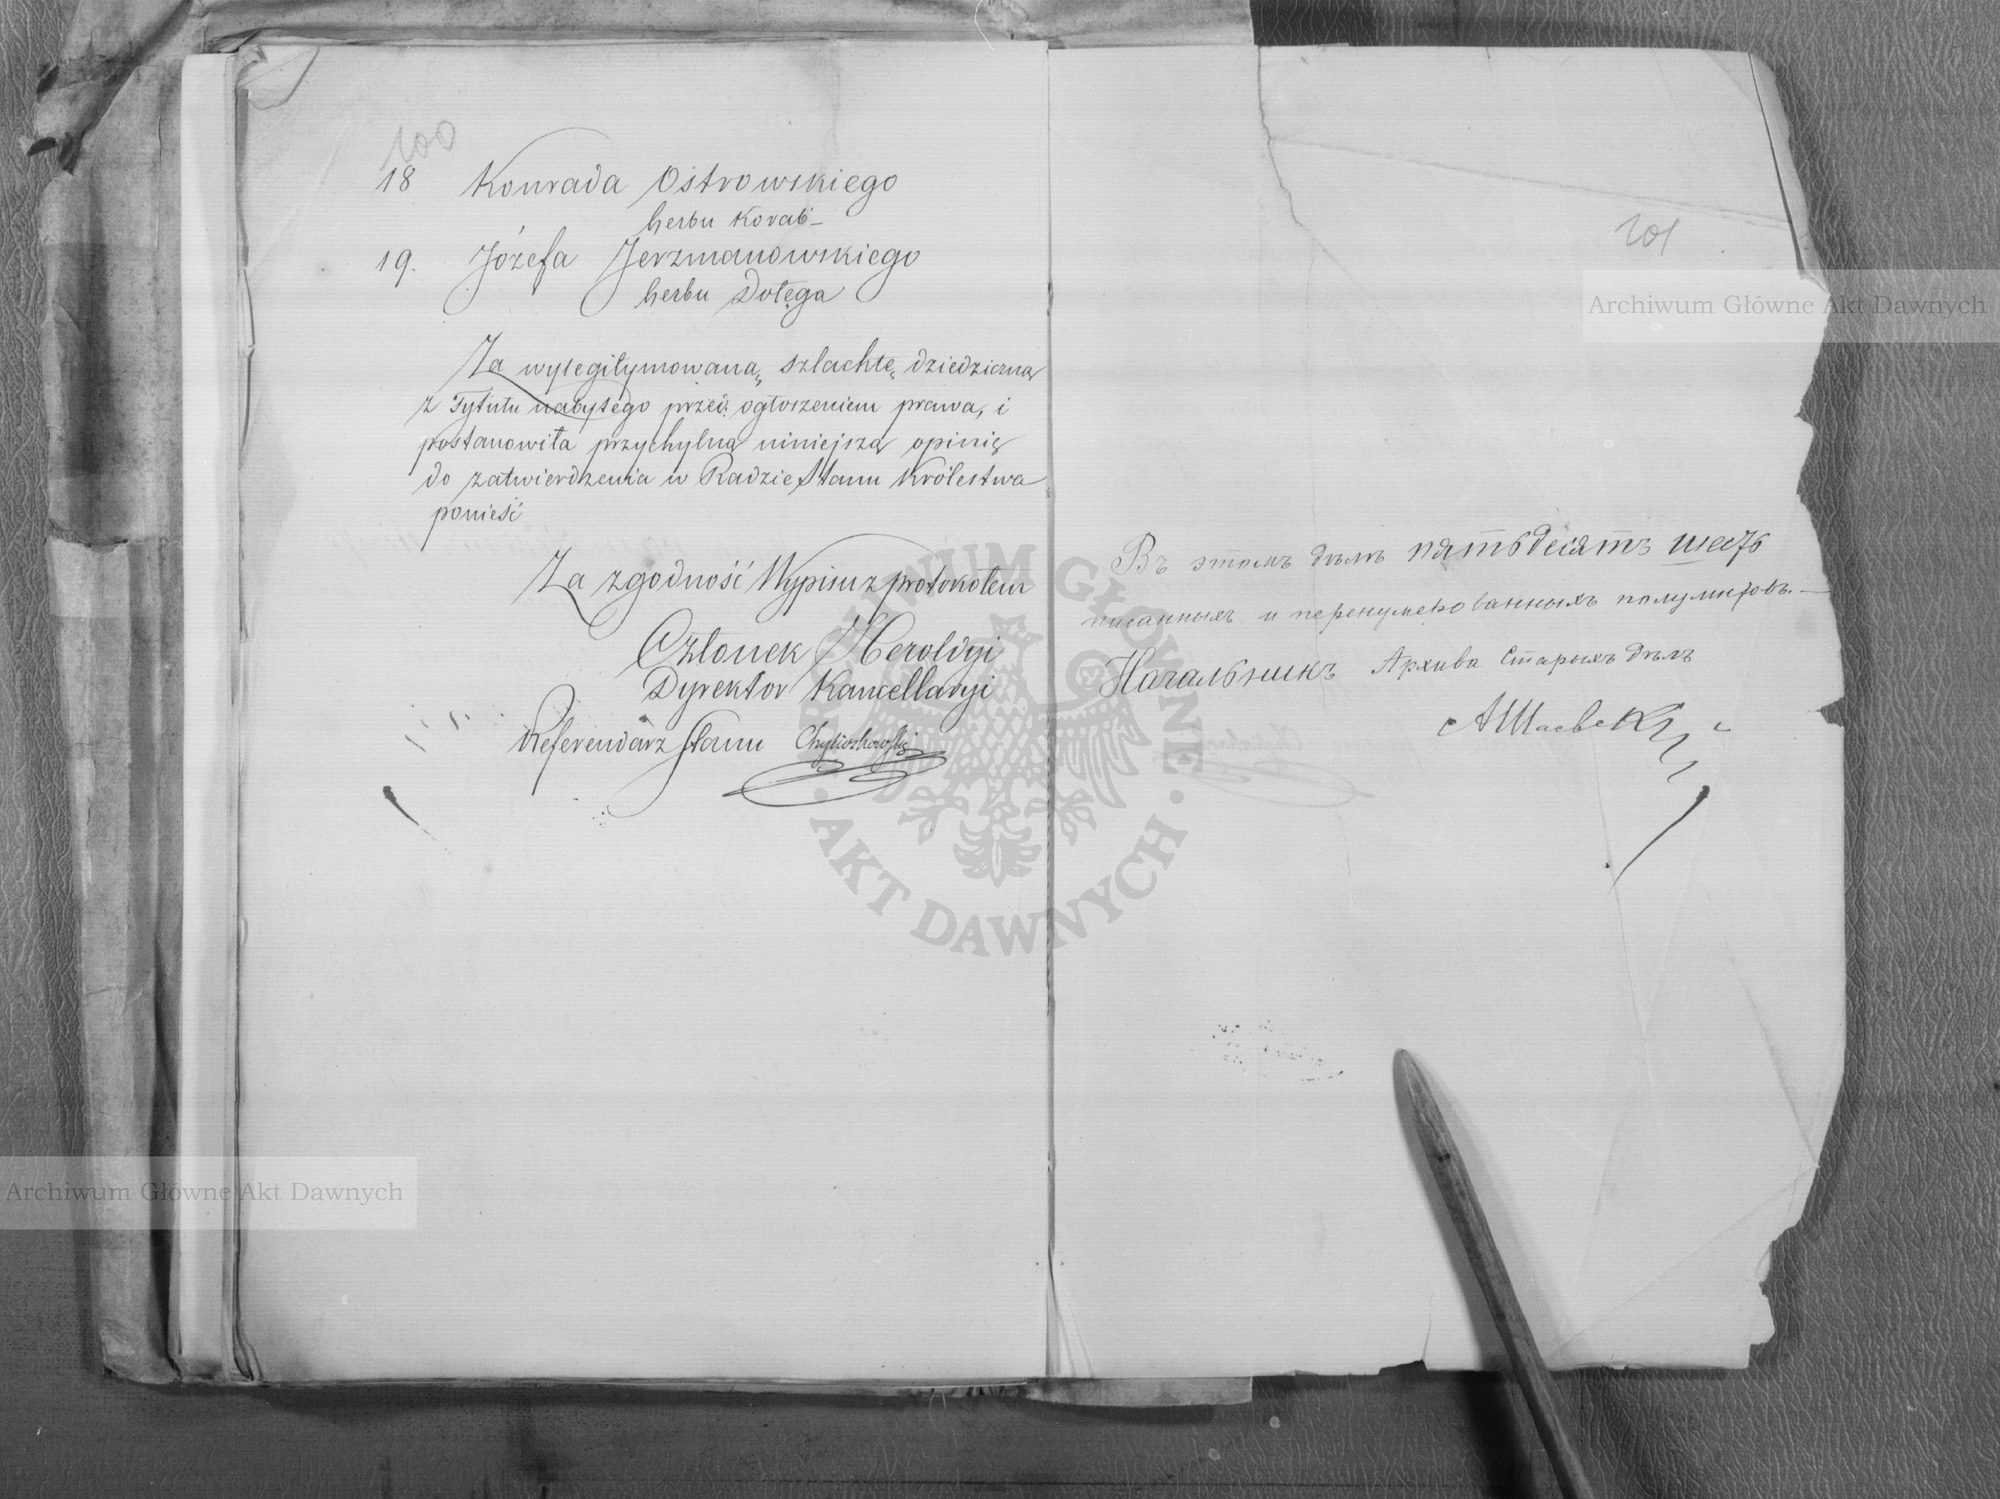 100
18 Konrada Ostrowskiego
herbu Korab –
19. Józefa Jerzmanowskiego
herbu Dołęga
Za wylegitymowaną szlachtę dziedziczną
z Tytułu nabytego przed ogłoszeniem prawa, i
postanowiła przychylną niniejszą opinię
do zatwierdzenia w Radzie Stanu Królestwa
ponieść
Za zgodność Wypisu z protokołem
Członek Heroldyi
Dyrektor Kancellaryi
Referendarz Stanu Chyliczkowski
101
Въ этомъ дѣлѣ пятьдесятъ шесть
писанныхъ и перенумерованныхъ полулистовъ. –
Начальникъ Архива Старыхъ дѣлъ
Archiwum Główne Akt Dawnych
Archiwum Główne Akt Dawnych
ARCHIWUM GŁÓWNE · AKT DAWNYCH ·